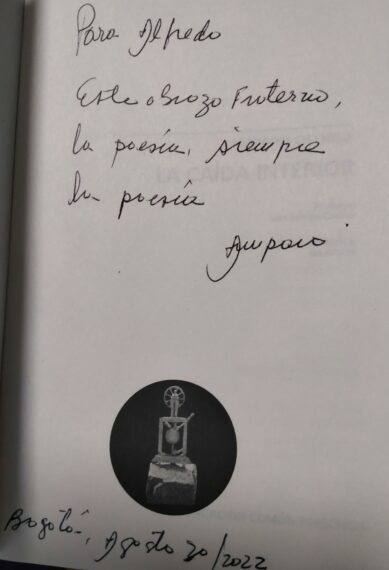 Para Alfredo
Este abrazo Fraterno,
la poesía, siempre
la poesía
Amparo
LA CAÍDA INTERIOR
Bogotá, Agosto 20/2022